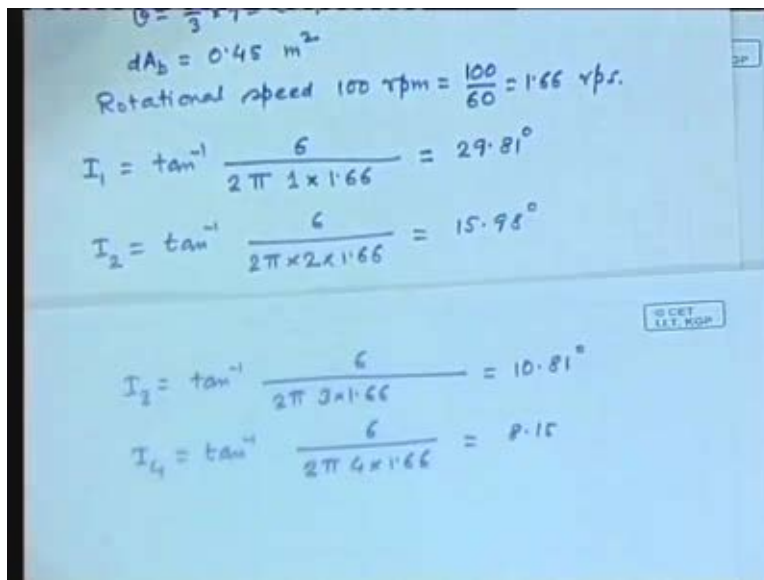 dA_b = 0.45 m²
Rotational speed 100 rpm = 100/60 = 1.66 rps.
I₁ = tan⁻¹ 6/(2π 1×1.66) = 29.81°
I₂ = tan⁻¹ 6/(2π×2×1.66) = 15.98°
© CET
I.I.T. KGP
I₃ = tan⁻¹ 6/(2π 3×1.66) = 10.81°
I₄ = tan⁻¹ 6/(2π 4×1.66) = 8.15